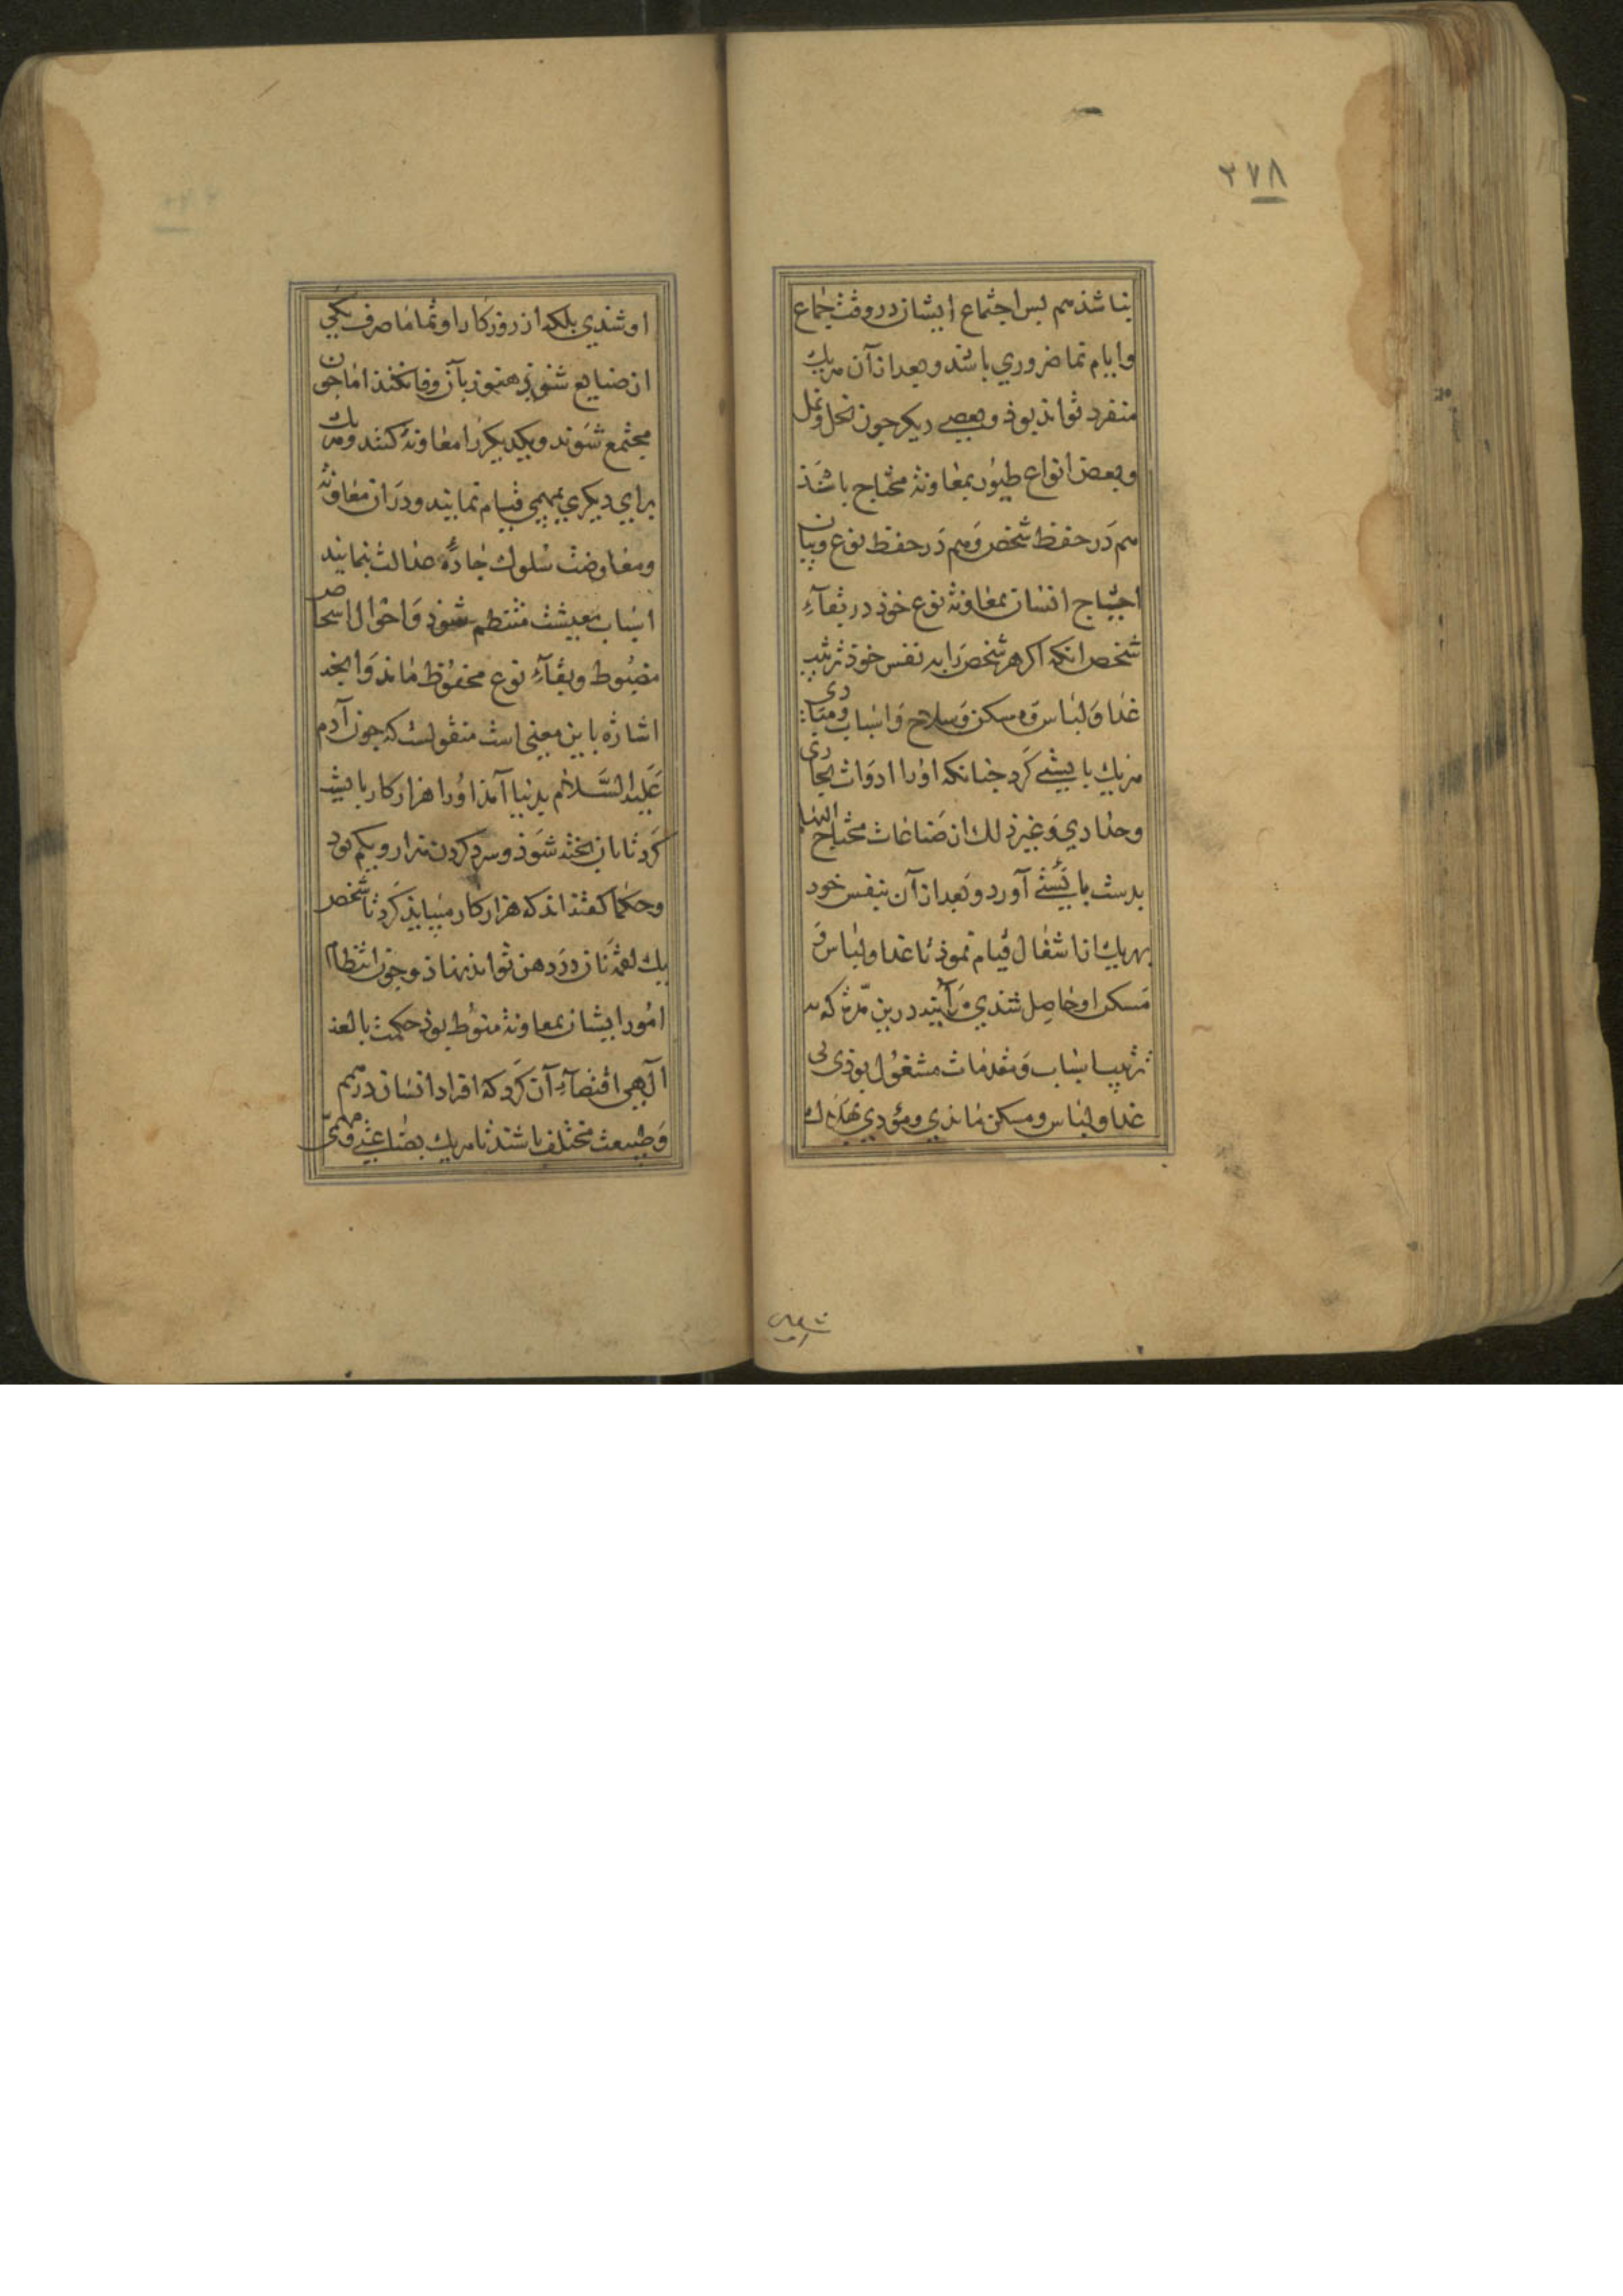 ٣٧٨
بناشد هم بس اجتماع ایشان در وقت جماع
و ایام نما ضروری باشد و بعد از آن هریك
منفرد تواند بوذ و بعضی دیکر جون نحل و نمل
و بعض انواع طیور بمعاونة محتاج باشند
هم در حفظ شخص و هم در حفظ نوع و بیان
احتیاج انسان بمعاونة نوع خوذ در بقآء
شخص انکه اکر هر شخص را به نفس خوذ ترتیب
غذا و لباس و مسکن و سلاح و اسباب و مبادی
هریك بایستی کرد جنانکه اورا ادوات نجاری
و حدادی و غیر ذلك از صناعات محتاج الیها
بدست بایستی آورد و بعد از آن بنفس خود
بهریك از اشغال قیام نموذ تا غذا و لباس و
مسکن او حاصل شدی هر آینه درین مدّت که به
ترتیب اسباب و مقدمات مشغول بوذی بی
غذا و لباس و مسکن ماندی و مؤدی بهلاك
او شدی بلکه از روزکار او تماما صرف یکی
از صنایع شوذ هنوز بآن وفا نکند اما جون
مجتمع شوند و یکدیکر را معاونة کنند و هریك
برای دیکری بمهمی قیام نمایند و در ان معاونة
و معاوضت سلوك جادّه عدالت بنمایند
اسباب معیشت منتظم شوذ و احوال اشخاص
مضبوط و بقآء نوع محفوظ ماند و انجه
اشاره باین معنی است منقولست که جون آدم
علیه السّلام بدنیا آمذ اورا هزار کار بایست
کرد تا نان بخته شوذ و سرد کردن هزار و یکم بود
و حکما کفته اند که هزار کار میباید کرد تا شخص
یك لقمه نان در دهن تواند نهاد و جون انتظام
امور ایشان بمعاونة منوط بوذ حکمت بالغه
آلهی اقتضآء آن کرد که افراد انسان در همم
و طبیعت مختلف باشند تا هریك بصناعتی و مهمّی